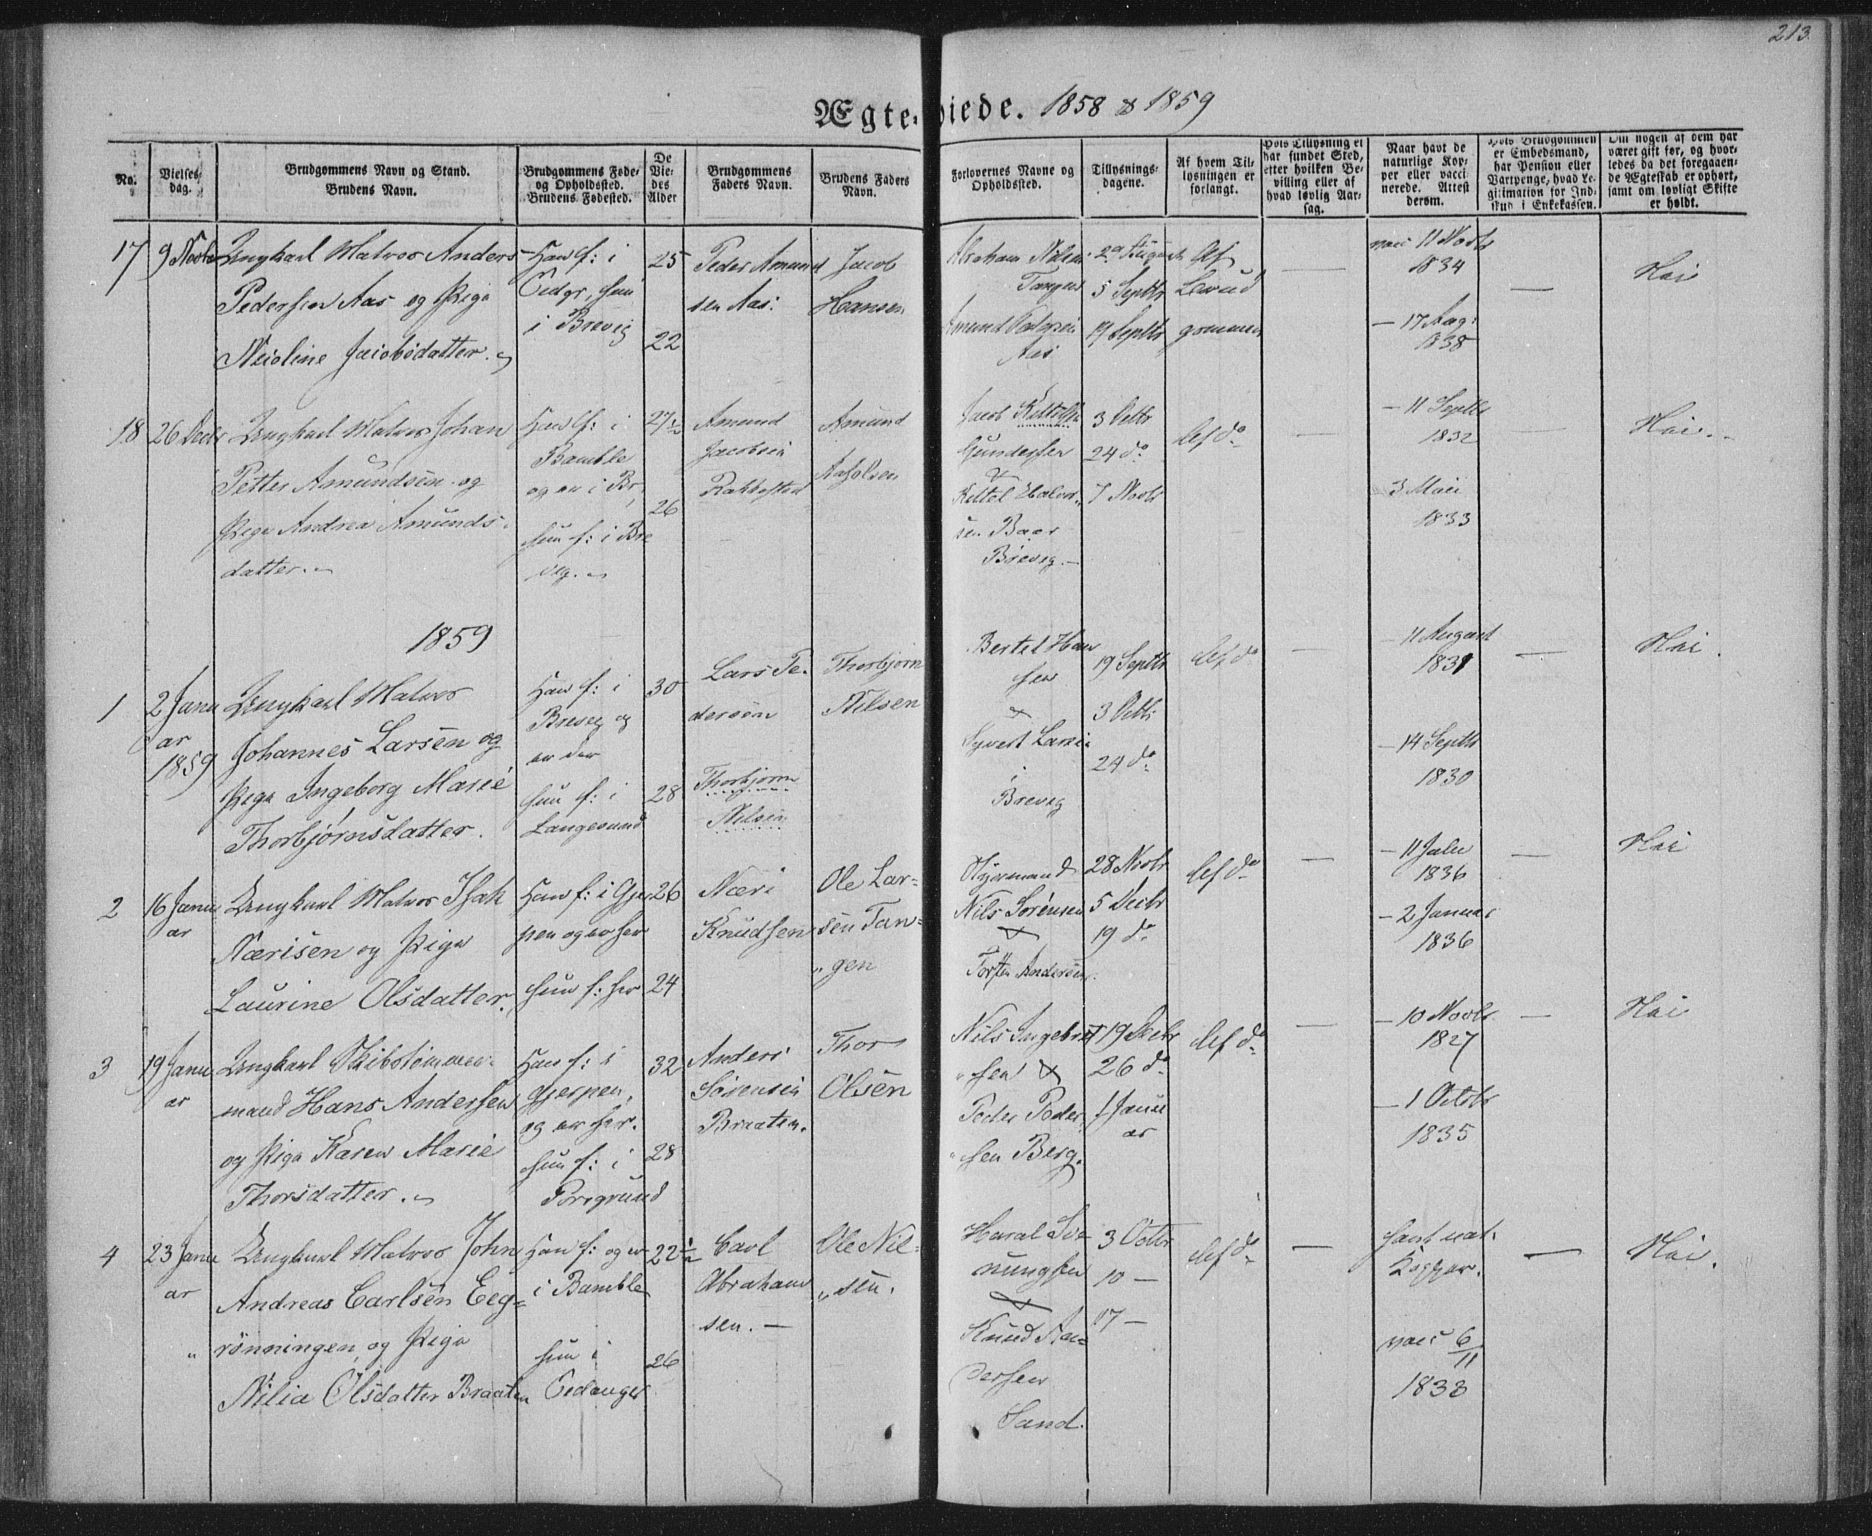 213.
Ægte-viede. 1858 & 1859
No.
Vielses-
dag.
Brudgommens Navn og Stand.
Brudens Navn.
Brudgommens Føde-
og Opholdssted.
Brudens Fødested.
De
Vie-
des
Alder
Brudgommens
Faders Navn.
Brudens Faders
Navn.
Forlovernes Navne og
Opholdssted.
Tillysnings-
dagene.
Af hvem Til-
lysningen er
forlangt.
Hvis Tillysning ei
har fundet Sted,
efter hvilken Be-
villing eller af
hvad lovlig Aar-
sag.
Naar havt de
naturlige Kop-
per eller vacci-
nerede. Attest
derom.
Hvis Brudgommen
er Embedsmand,
har Pension eller
Vartpenge, hvad Le-
gitimation for Ind-
skud i Enkekassen.
Om nogen af dem har
været gift før, og hvor-
ledes da det foregaaen-
de Ægteskab er ophørt,
samt om lovligt Skifte
er holdt.
17
9 Novbr
Ungkarl Matros Anders
Pedersen Aas og Pige
Nicoline Jacobsdatter.
Han f: i
Eidgr, hun
i Brevig
25
22
Peder Amund
sen Aas:
Jacob
Hansen
Abraham Nilsen
Tangen
Amund Pedersen
Aas
29 August
5 Septbr
19 Septbr
Af
Brud
gommen
—
vacc 11 Novbr
1834
— 17 Aug:
1838
—
Nei
18
26 Decbr
Ungkarl Matros Johan
Petter Amundsen og
Pige Andrea Amunds-
datter.
Han f: i
Bamble
og er i Br,
hun f: i Bre
vig.
27½
26
Amund
Jacobsen
Rakkestad
Amund
Aasolsen
Jacob Kittelsen
Gundersen
&
Kittel Halvor-
sen Baar
Brevig.
3 Octbr
24 do
7 Novbr
Af do
—
— 11 Septbr
1832
3 Mai
1833
—
Nei.
1859
1
2 Janu
ar
1859
Ungkarl Matros
Johannes Larsen og
Pige Ingeborg Marie
Thorbjørnsdatter.
Han f: i
Brevig og
er der
hun f: i
Langesund
30
28
Lars Pe-
dersen
Thorbjørn
Nilsen
Thorbjørn
Nilsen
Bertel Han
sen
&
Syvert Larsen
i
Brevig
19 Septbr
3 Octbr
24 do
Af do
—
— 11 August
1831
— 14 Septbr
1830
—
Nei.
2
16 Janu
ar
Ungkarl Matros Isak
Nærisen og Pige
Laurine Olsdatter.
Han f: i Gjer
pen og er her
hun f: her
26
24
Næri
Knudsen
Ole Lar-
sen Tan-
gen
Nils Sørensen
&
Torsten Andersen.
28 Novbr
5 Decbr
19 do
Af do
—
— 11 Juli
1836
— 2 Januar
1836
—
Nei
3
19 Janu
ar
Ungkarl Skibstømmer-
mand Hans Andersen
og Pige Karen Marie
Thorsdatter.
Han f: i
Gjerpen,
og er her.
hun f: i
Porsgrund
32
28
Anders
Sørensen
Braaten.
Thor
Olsen
Nils Ingebret
sen &
Peder Peder
sen Berg.
19 Decbr
26 do
1 Janu
ar
Af do
—
— 10 Novbr
1827
— 1 Octobr
1835
—
Nei
4
23 Janu
ar
Ungkarl Matros John
Andreas Carlsen Eeg-
rønningen og Pige
Nilia Olsdatter Braaten
Han f: og er
i Bamble
hun i
Eedanger
22½
26
Carl
Abraham
sen. —
Ole Nil-
sen.
Haral Sv-
nungsen
&
Knud An-
dersen
Sand.
3 Octbr
10 —
17 —
Af do
—
havt nat.
Kopper.
vacc 6/11
1833
—
Nei.